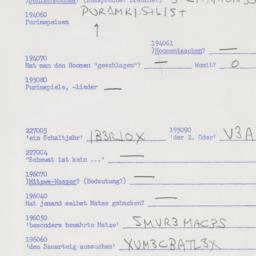 194060
Purimspeisen PURAMKIS+LIS+
194061
)Hoomentaschen? ) —
194070
Hat man den Hooman "geschlagen"? — Womit? O
193080
Purimspiele, -lieder —
227003
'ein Schaltjahr' 193090
'der 2. Oder' V3A
227004
"Schwat ist kein ..." —
196070
)Mitzwe-Wasser? (Bedeutung?) —
194040
Hat jemand selbst Matse gebacken? —
196050
'besonders bewahrte Matse' SMVR3MAC3S
196060
'den Sauerteig aussuchen' XUM3CBATL3X